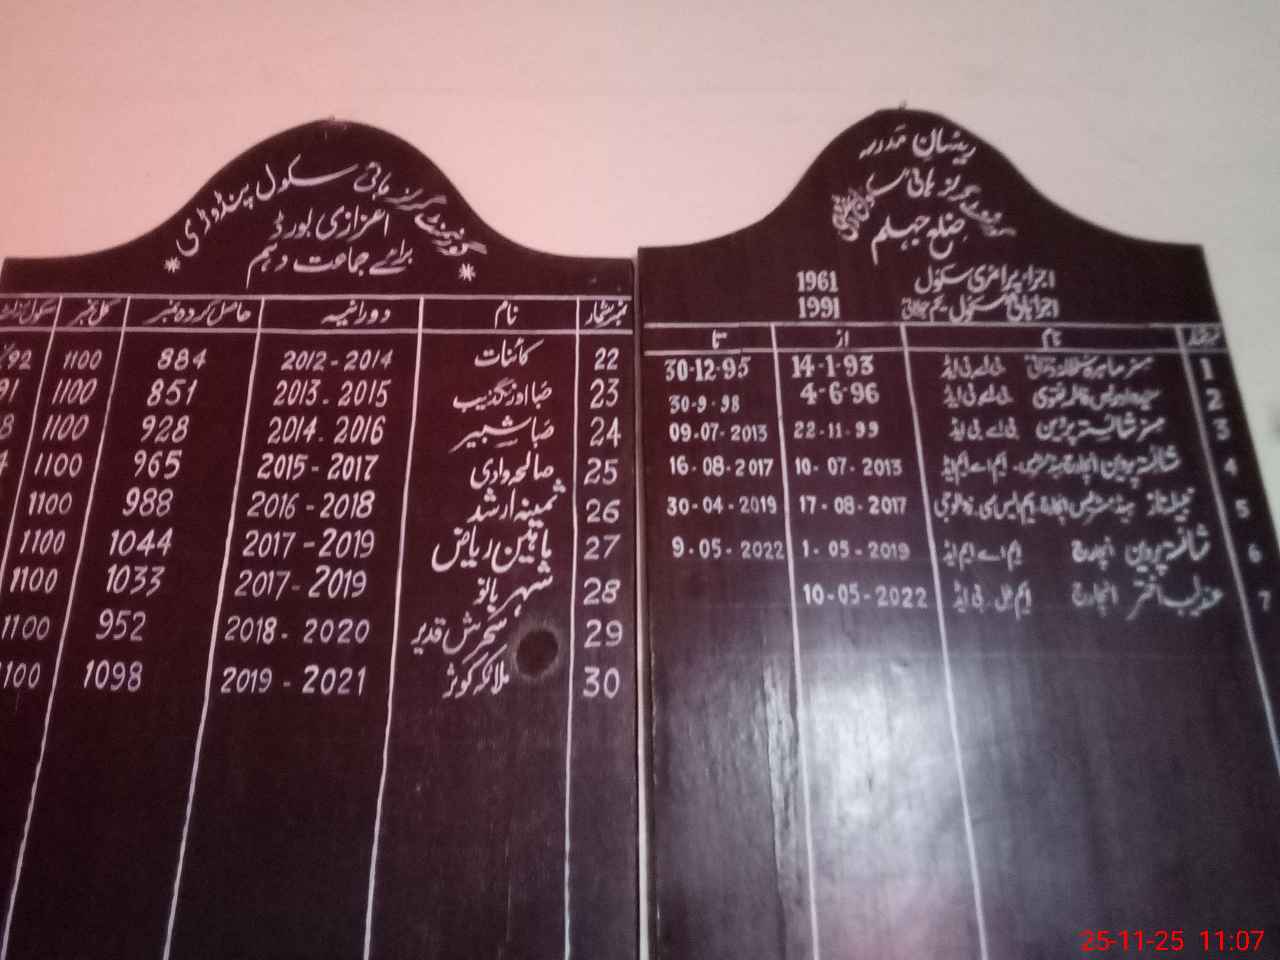 گورنمنٹ گرلز ہائی سکول پنڈوڑی
اعزازی بورڈ
* برائے جماعت دہم *
نمبر شمار نام دورانیہ حاصل کردہ نمبر کل نمبر
22 کائنات 2012-2014 884 1100 92
23 صبا اورنگزیب 2013-2015 851 1100 91
24 صبا شبیر 2014-2016 928 1100
25 صالحہ وادی 2015-2017 965 1100
26 ثمینہ ارشد 2016-2018 988 1100
27 ماہین ریاض 2017-2019 1044 1100
28 شہر بانو 2017-2019 1033 1100
29 سحرش قدیر 2018-2020 952 1100
30 ملائکہ کوثر 2019-2021 1098 1100
مدرسہ
گورنمنٹ گرلز ہائی سکول
ضلع جہلم
اجراء پرائمری سکول 1961
اجرا ہائی سکول یکم 1991
نمبر شمار نام از تا
1 مسز بی اے بی ایڈ 14-1-93 30-12-95
2 سیدہ نقوی بی اے بی ایڈ 4-6-96 30-9-98
3 مسز شائستہ پروین بی اے بی ایڈ 22-11-99 09-07-2013
4 شائستہ پروین انچارج ہیڈمسٹریس ایم اے ایم ایڈ 10-07-2013 16-08-2017
5 نبیلہ ناز ہیڈ مسٹریس انچارج ایم ایس سی زوالوجی 17-08-2017 30-04-2019
6 شائستہ پروین انچارج ایم اے ایم ایڈ 1-05-2019 9-05-2022
7 عندلیب اختر انچارج بی ایڈ 10-05-2022
25-11-25 11:07